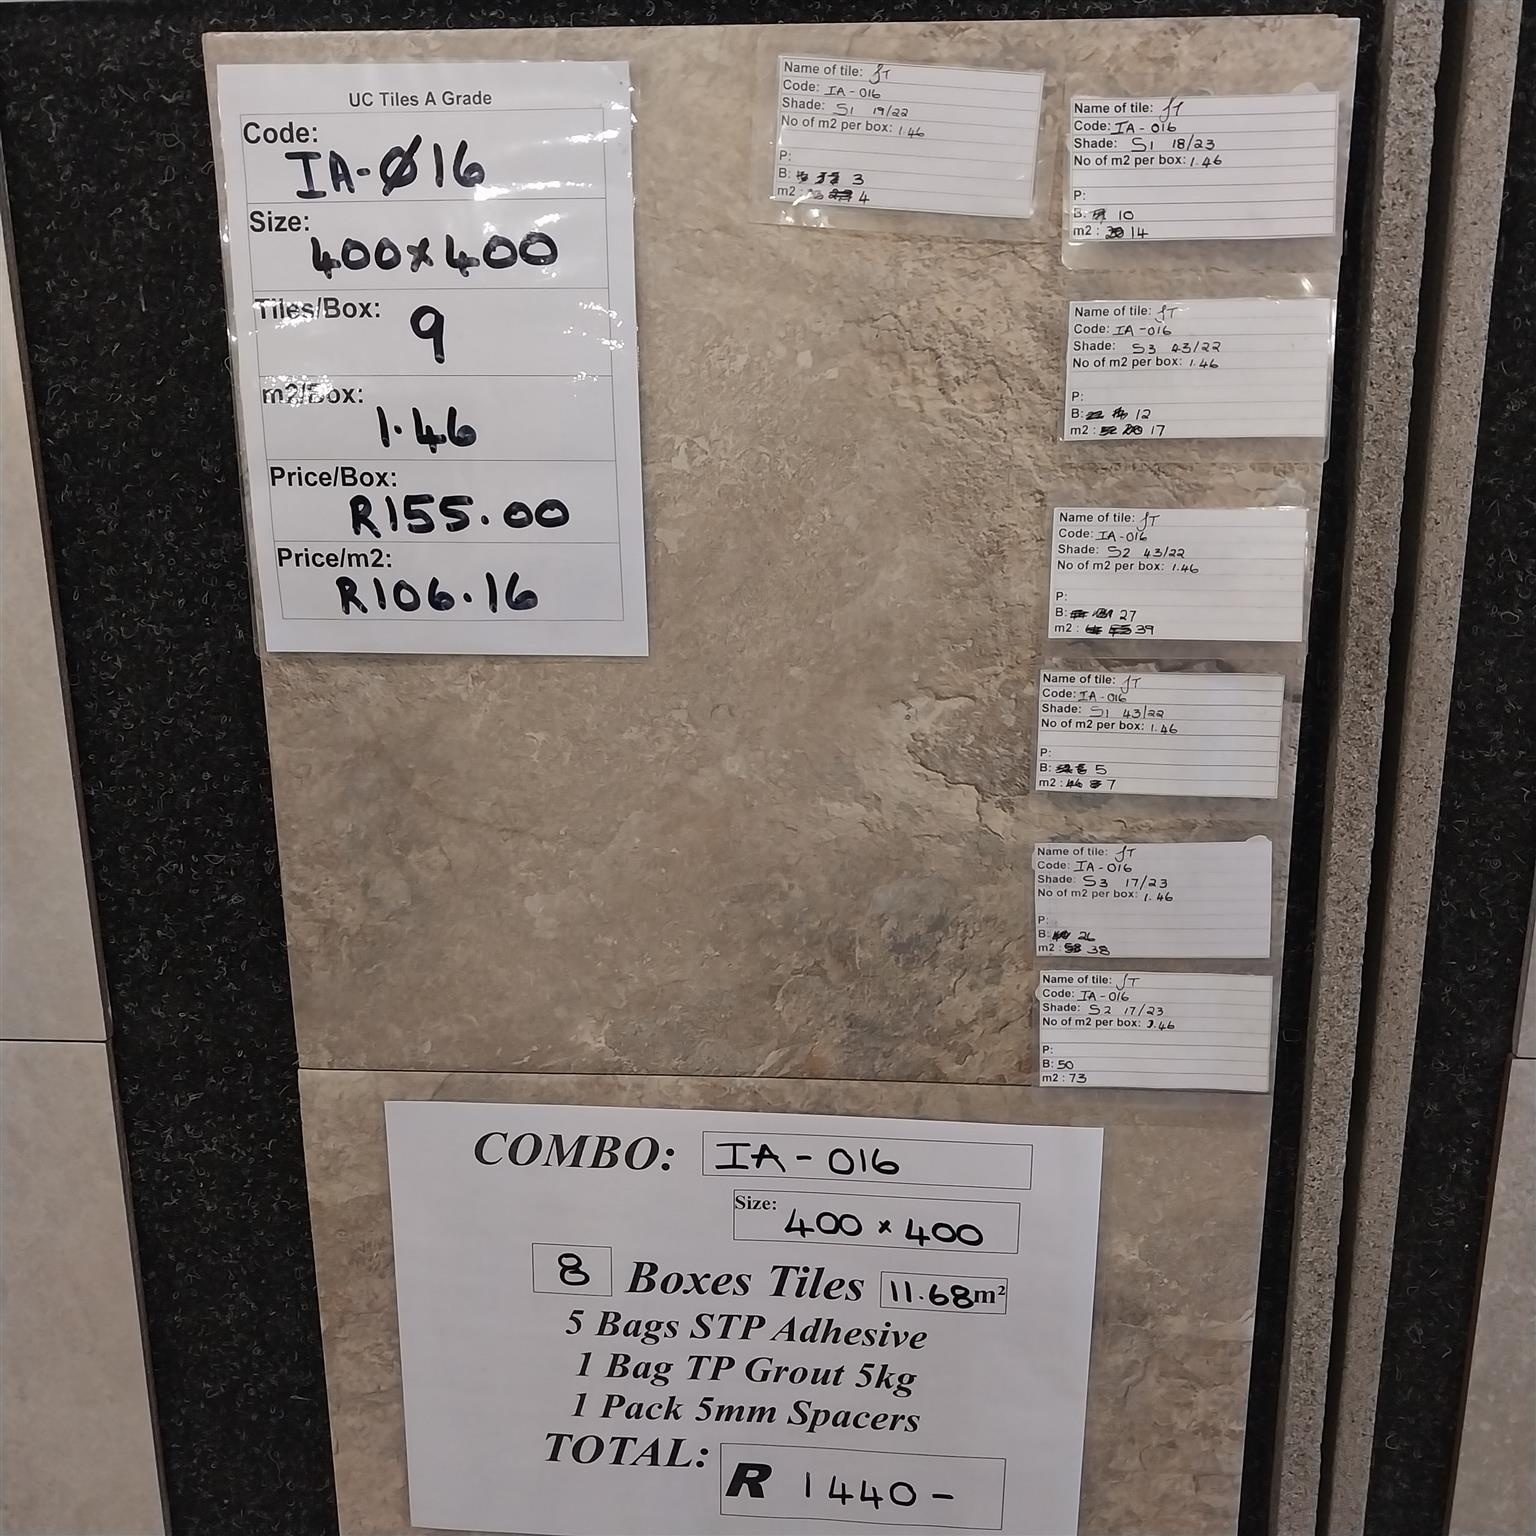 UC Tiles A Grade
Code:
IA-016
Size:
400x400
Tiles/Box:
9
m2/Box:
1.46
Price/Box:
R155.00
Price/m2:
R106.16
Name of tile: JT
Code: IA-016
Shade: S1 19/22
No of m2 per box: 1.46
P:
B: 3
m2: 4
Name of tile: JT
Code: IA-016
Shade: S1 18/23
No of m2 per box: 1.46
P:
B: 10
m2: 14
Name of tile: JT
Code: IA-016
Shade: S3 43/22
No of m2 per box: 1.46
P:
B: 12
m2: 17
Name of tile: JT
Code: IA-016
Shade: S2 43/22
No of m2 per box: 1.46
P:
B: 27
m2: 39
Name of tile: JT
Code: IA-016
Shade: S1 43/22
No of m2 per box: 1.46
P:
B: 5
m2: 7
Name of tile: JT
Code: IA-016
Shade: S3 17/23
No of m2 per box: 1.46
P:
B: 26
m2: 38
Name of tile: JT
Code: IA-016
Shade: S2 17/23
No of m2 per box: 1.46
P:
B: 50
m2: 73
COMBO: IA-016
Size: 400 x 400
8 Boxes Tiles 11.68m²
5 Bags STP Adhesive
1 Bag TP Grout 5kg
1 Pack 5mm Spacers
TOTAL: R 1440-